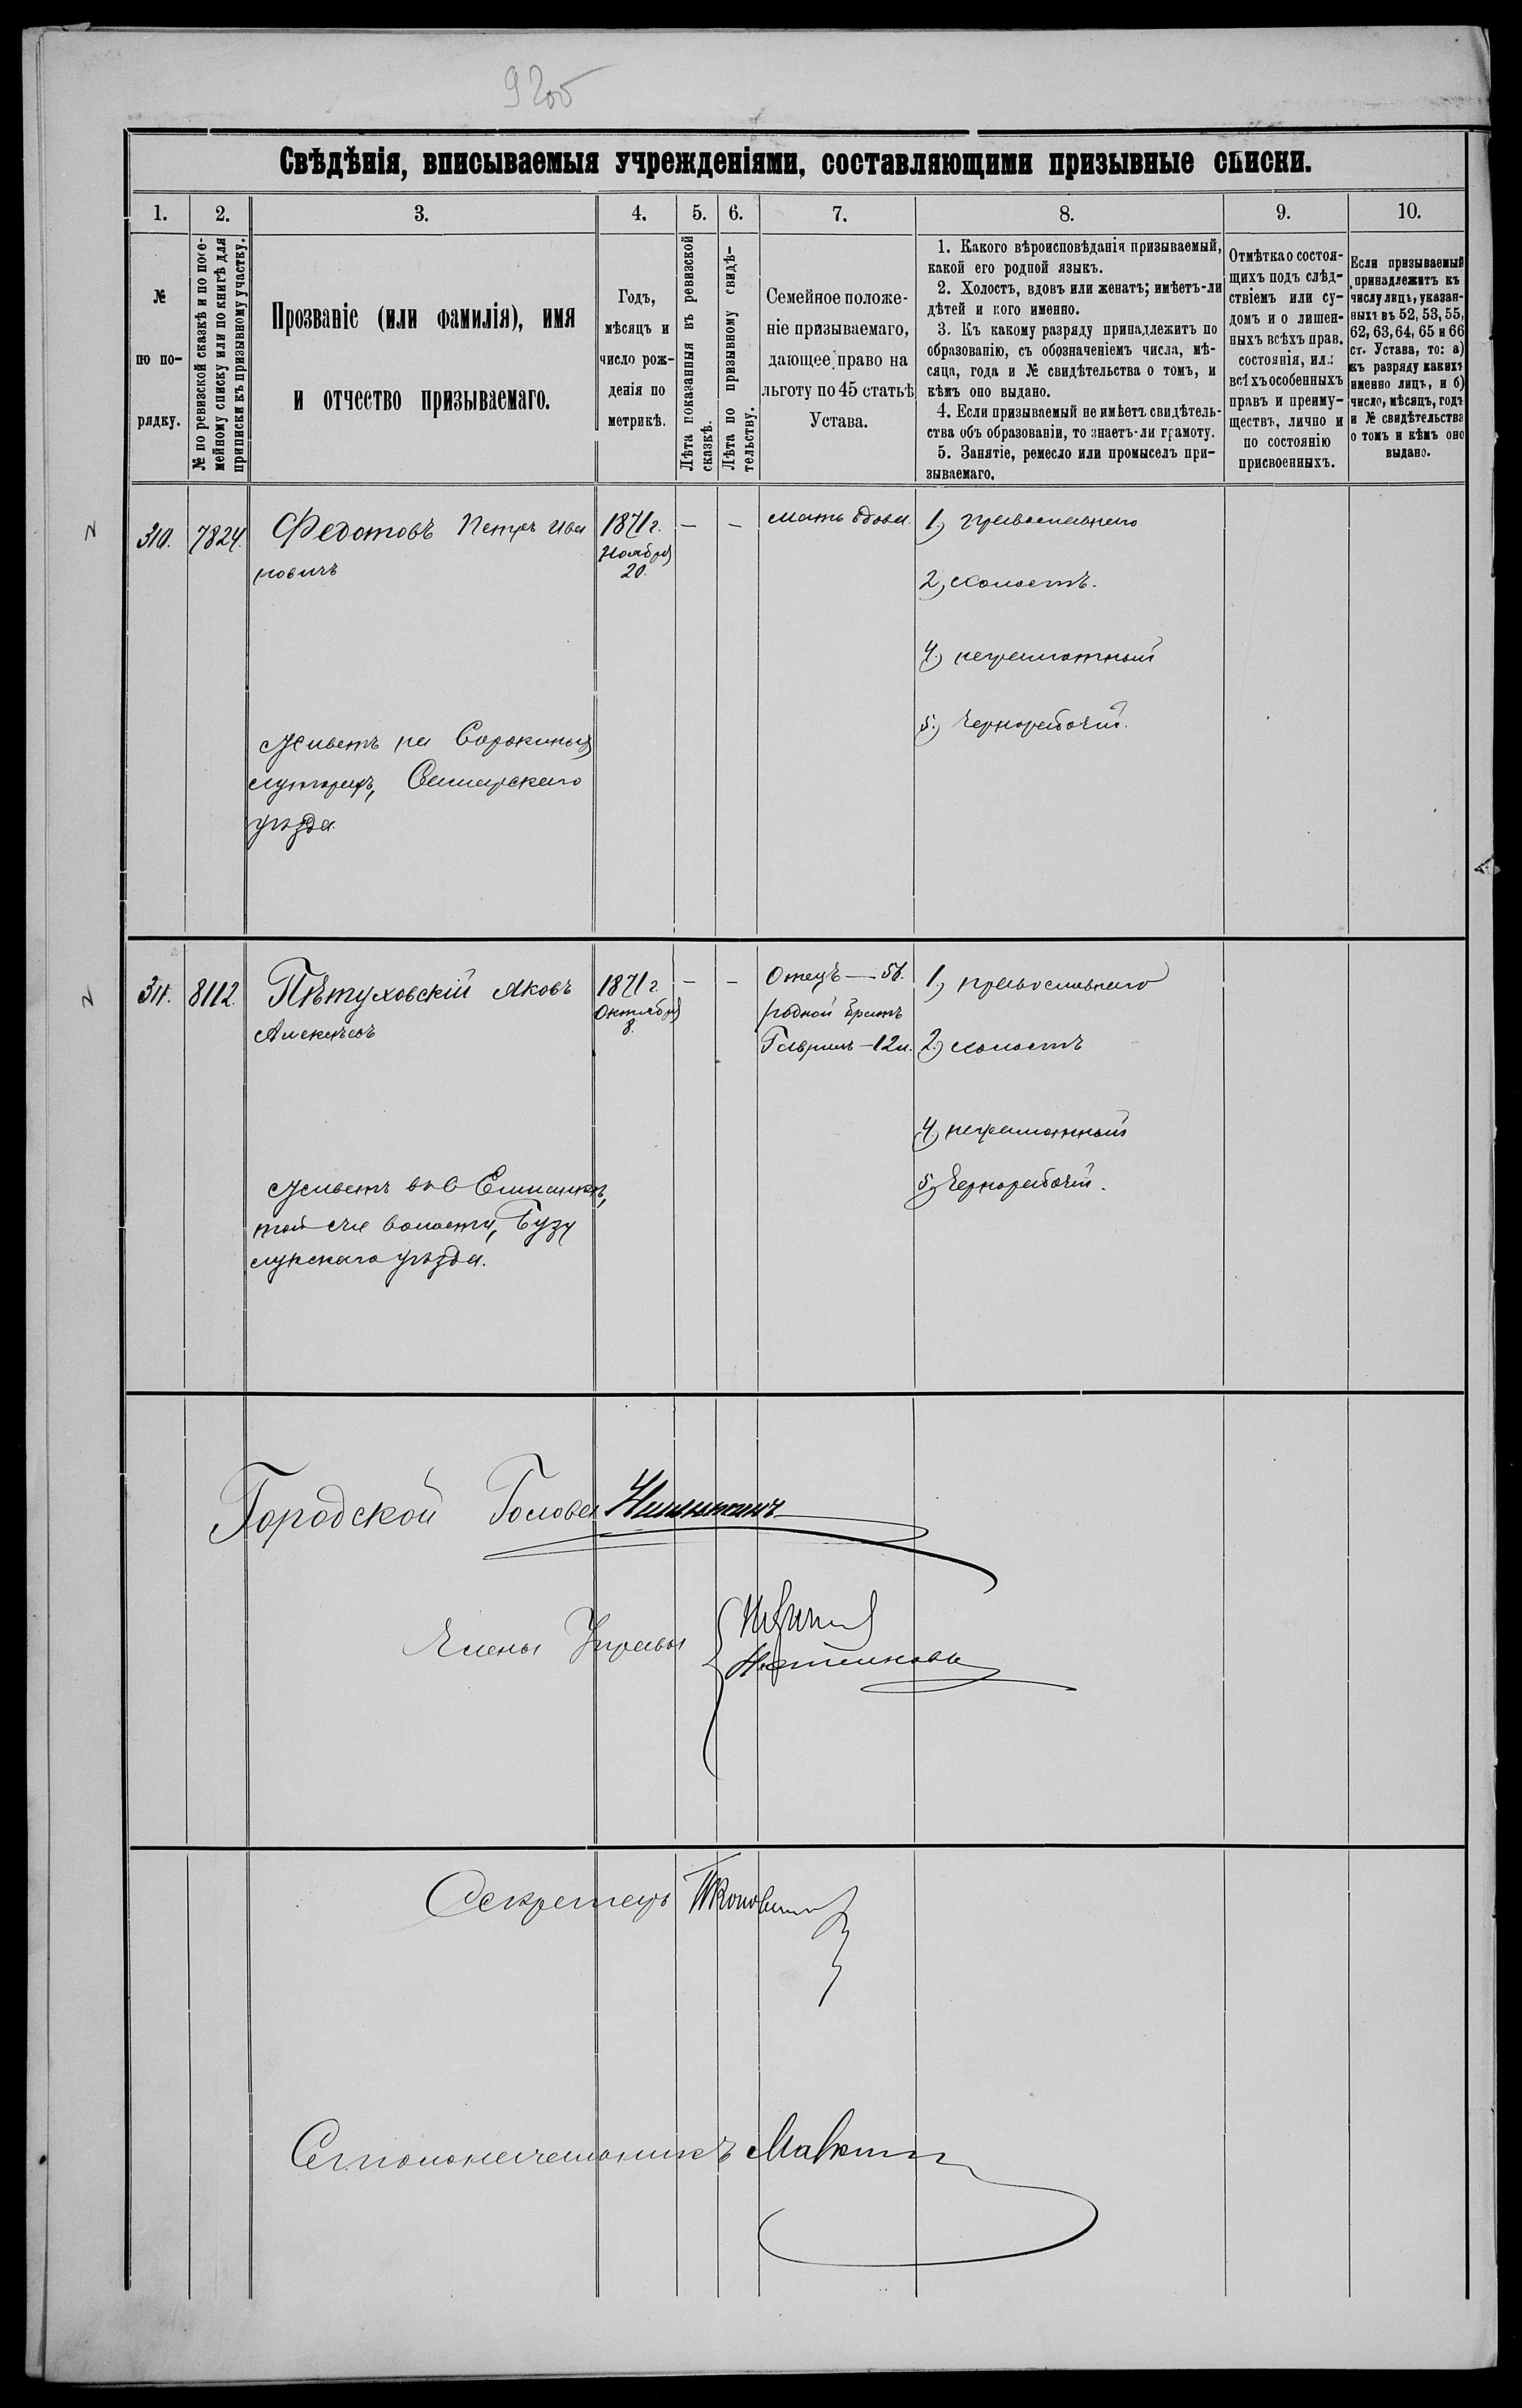 9 200
Свѣдѣнія, вписываемыя учрежденіями, составляющими призывные списки.
1. 2. 3. 4. 5. 6. 7. 8. 9. 10.
№
по по-
рядку.
№ по ревизской сказкѣ и по посе-
мейному списку или по книгѣ для
приписки къ призывному участку.
Прозваніе (или фамилія), имя
и отчество призываемаго.
Годъ,
мѣсяцъ и
число рож-
денія по
метрикѣ.
Лѣта показанныя въ ревизской
сказкѣ.
Лѣта по призывному свидѣ-
тельству.
Семейное положе-
ніе призываемаго,
дающее право на
льготу по 45 статьѣ
Устава.
1. Какого вѣроисповѣданія призываемый,
какой его родной языкъ.
2. Холостъ, вдовъ или женатъ; имѣетъ-ли
дѣтей и кого именно.
3. Къ какому разряду принадлежитъ по
образованію, съ обозначеніемъ числа, мѣ-
сяца, года и № свидѣтельства о томъ, и
кѣмъ оно выдано.
4. Если призываемый не имѣетъ свидѣтель-
ства объ образованіи, то знаетъ-ли грамоту.
5. Занятіе, ремесло или промыселъ при-
зываемаго.
Отмѣтка о состоя-
щихъ подъ слѣд-
ствіемъ или су-
домъ и о лишен-
ныхъ всѣхъ прав.
состоянія, ил:
всѣхъ особенныхъ
правъ и преиму-
ществъ, лично и
по состоянію
присвоенныхъ.
Если призываемый
принадлежитъ къ
числу лицъ, указан-
ныхъ въ 52, 53, 55,
62, 63, 64, 65 и 66
ст. Устава, то: а)
къ разряду какихъ
именно лицъ, и б)
число, мѣсяцъ, годъ
и № свидѣтельства
о томъ и кѣмъ оно
выдано.
310. 7824. Федотовъ Петръ Ива
новичъ
1871 г.
Ноября
20.
— —
мать вдова.
1) православнаго
2) холостъ.
4.) неграмотный
5.) чернорабочій.
Живетъ на Сорокиныхъ
хуторахъ, Самарскаго
уѣзда.
311. 8112. Пѣтуховскій Яковъ
Алексѣевъ
1871 г.
Октября
8.
— —
Отецъ — 56.
родной братъ
Гаврилъ — 12 л.
1) православнаго
2.) холостъ
4.) неграмотный
5) Чернорабочій.
Живетъ въ с
той же волости, Бузу
лукскаго уѣзда.
Городской Голова
Члены Управы
Секретарь
Столоначальникъ